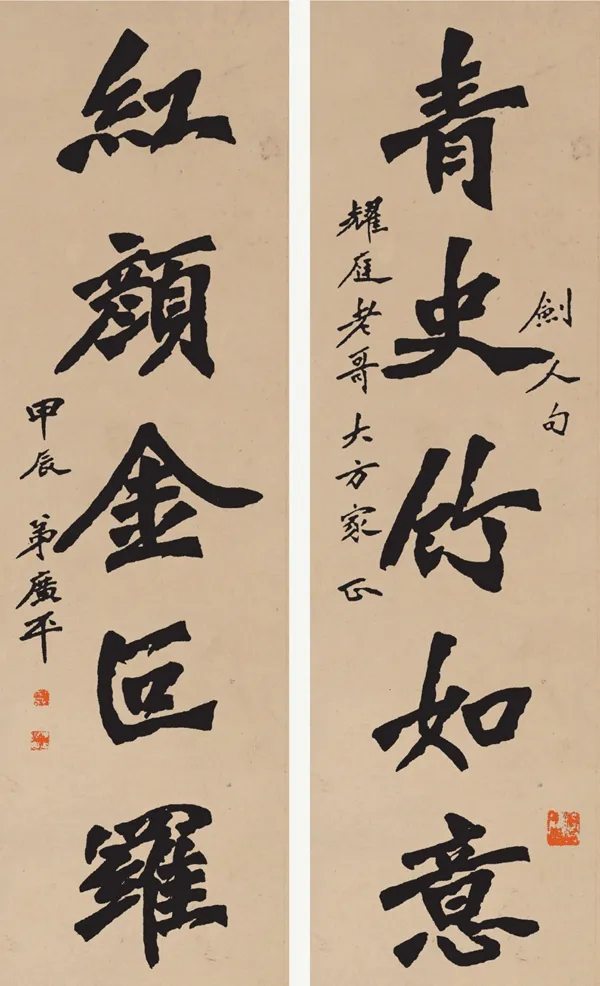 劍人句
青史竹如意
耀庭老哥大方家正
紅顏金叵羅
甲辰 弟廣平